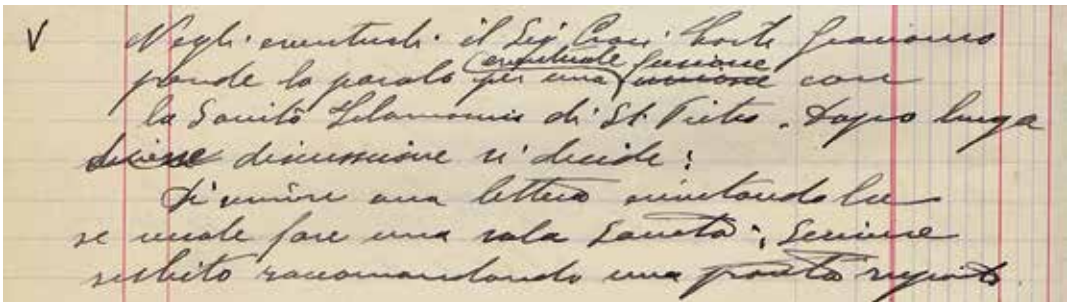 V Negli eventuali il Sig. Croci Conte Giacomo
prende la parola per una eventuale fusione unione con
la Società Filarmonica di St. Pietro. Dopo lunga
discussione si decide:
Di inviare una lettera invitandola
se vuole fare una sola Società; Scrivere
subito raccomandando una pronta risposta